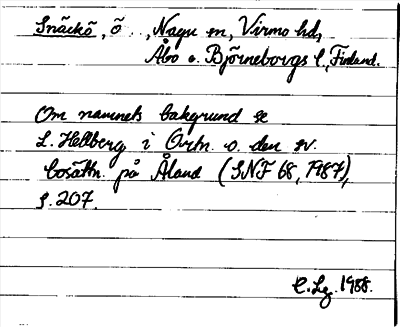 Snäckö, ö.., Nagu sn, Virmo hd,
Åbo o. Björneborgs l., Finland.
Om namnets bakgrund se
L. Hellberg i Ortn. o. den sv.
bosättn. på Åland (SNF 68, 1987),
s. 207.
C. Lg. 1988.